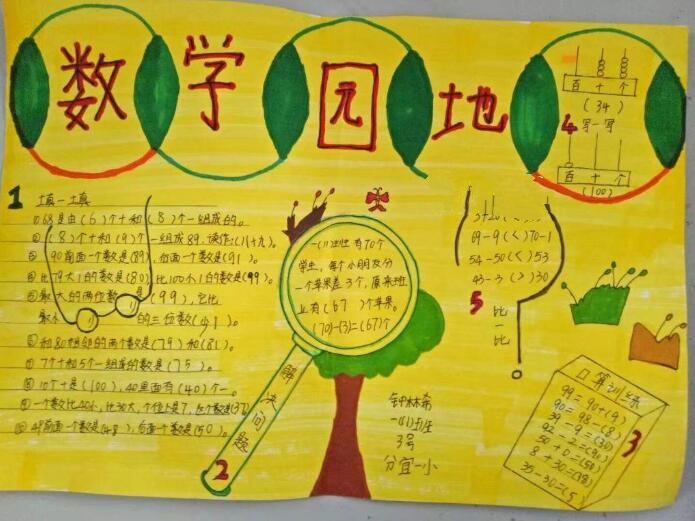 数学园地
百十个
(34)
4 写一写
百十个
(100)
1 填一填
①68是由(6)个十和(8)个一组成的。
②(8)个十和(9)个一组成89,读作:(八十九)。
③90前面一个数是(89),后面一个数是(91)。
④比79大1的数是(80),比100小1的数是(99)。
⑤最大的两位数是(99),它比
最小的三位数(少1)。
⑥和80相邻的两个数是(79)和(81)。
⑦7个十和5个一组成的数是(75)。
⑧10个十是(100),40里面有(40)个一。
⑨一个数比40小,比30大,个位上是7,这个数是(37)
⑩49前面一个数是(48),后面一个数是(50)。
一(1)班有70个
学生,每个小朋友分
一个苹果差3个,原来班
上有(67)个苹果。
(70)-(3)=(67)个
解决问题
2
69-9(<)70-1
54-50(<)53
43-3(>)30
5
比一比
钟林希
一(1)班
3号
分宜一小
口算训练
99=90+(9)
90=98-(8)
39-9=(30)
92-2=(90)
50+0=(50)
8+30=(38)
35-30=(5)
3